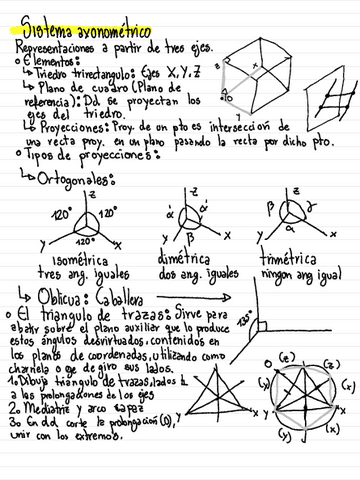 Sistema axonométrico
Representaciones a partir de tres ejes.
o Elementos:
↳ Triedro trirectangulo: Ejes X, Y, Z
↳ Plano de cuadro (Plano de
referencia): Dd se proyectan los
ejes del triedro.
↳ Proyecciones: Proy. de un pto es interseccion de
una recta proy. en un plano pasando la recta por dicho pto.
o Tipos de proyecciones:
↳ Ortogonales:
z z z
120° 120° α α β γ
120° β α
y x y x y x
isométrica dimétrica trimétrica
tres ang. iguales dos ang. iguales ningon ang igual
↳ Oblicua: Caballera
135°
o El triangulo de trazas: Sirve para
abatir sobre el plano auxiliar que lo produce
estos ángulos desvirtuados, contenidos en
los planos de coordenadas, utilizando como
charnela o eje de giro sus lados.
1o Dibuja triangulo de trazas, lados ⊥
a las prolongaciones de los ejes
2o Mediatriz y arco capaz
3o En dd corte la prolongación (O),
unir con los extremos.
y x
O (z) z (z)
(y) (x)
y x
(y) (x)